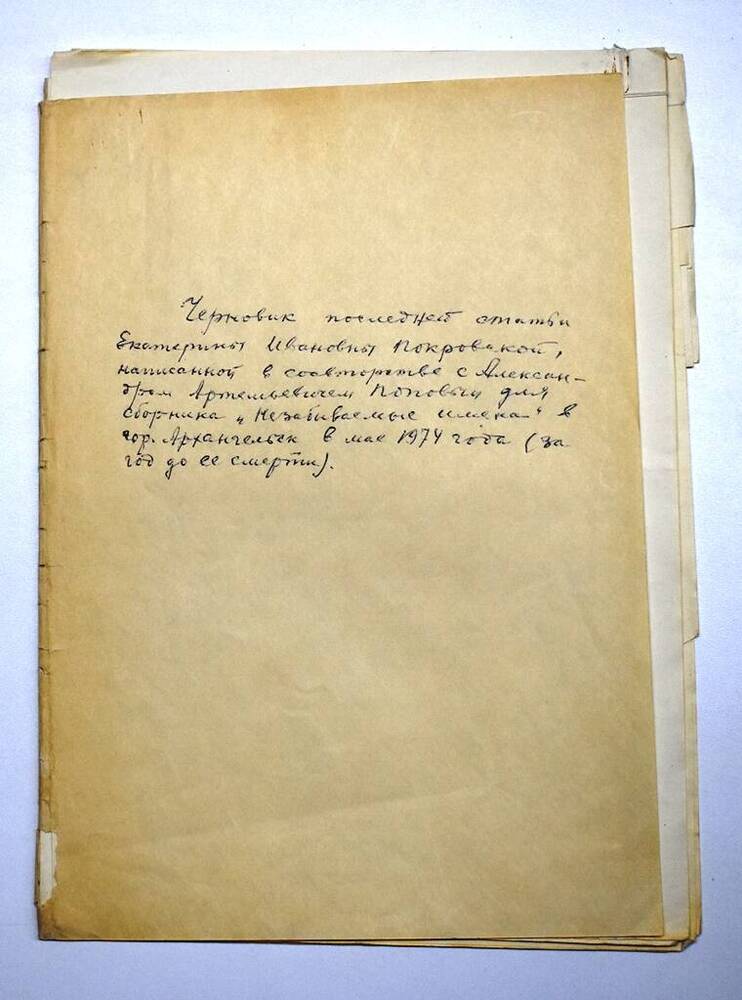 Черновик последней статьи
Екатерины Ивановны Покровской,
написанной в соавторстве с Алексан-
дром Артемьевичем Поповым для
сборника „Незабываемые имена" в
гор. Архангельск в мае 1974 года (за
год до ее смерти).